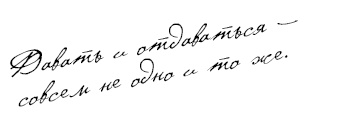 Давать и отдаваться –
совсем не одно и то же.